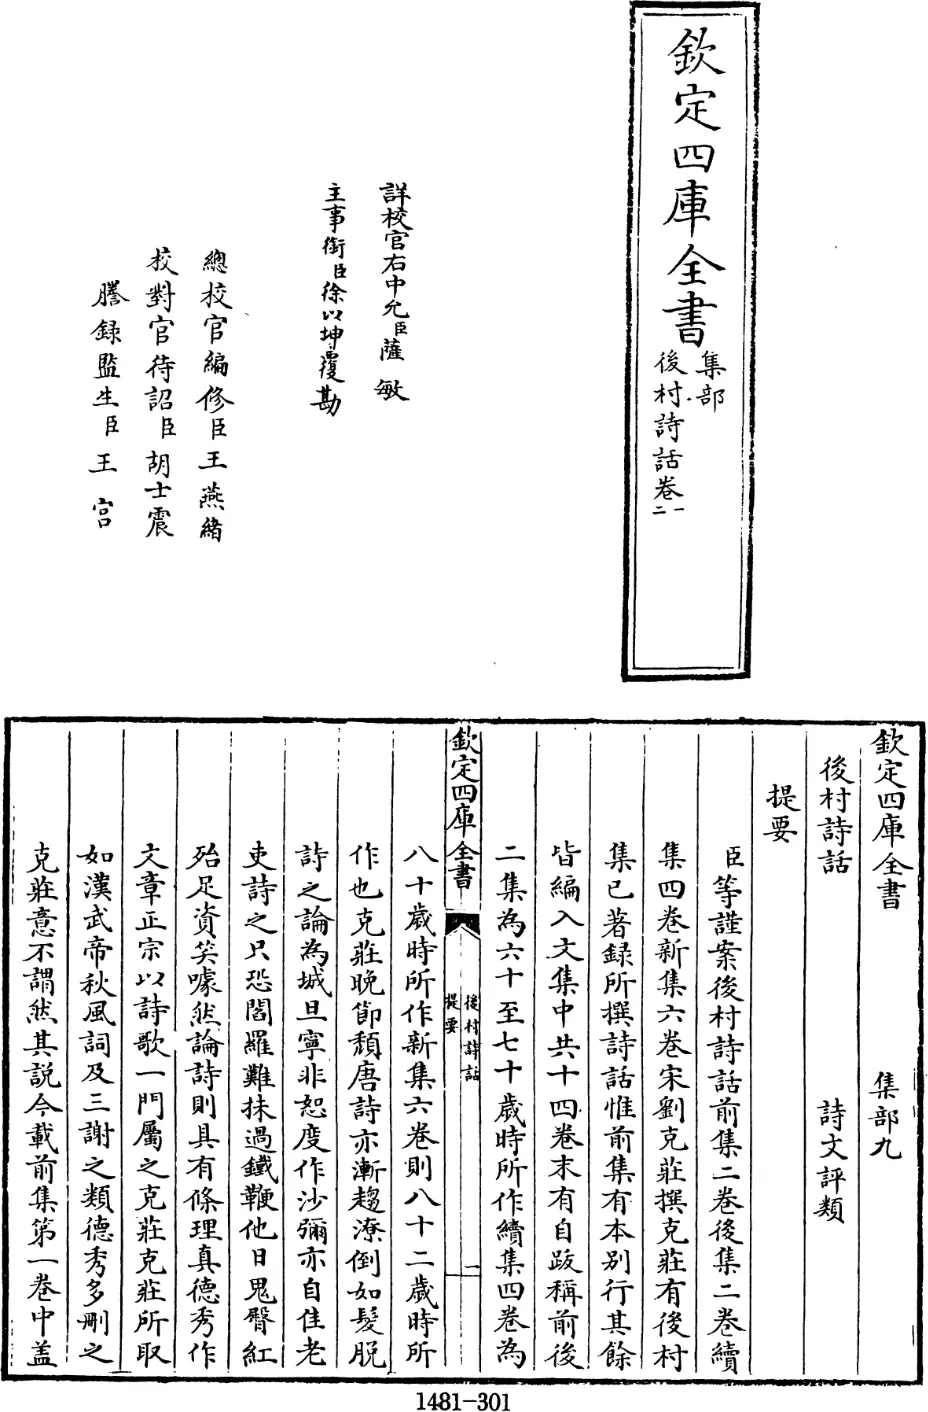 欽定四庫全書
集部
後村詩話卷一
二
詳校官右中允臣薩敏
主事銜臣徐以坤覆勘
總校官編修臣王燕緒
校對官待詔臣胡士震
謄錄監生臣王宮
欽定四庫全書 集部九
後村詩話 詩文評類
提要
臣等謹案後村詩話前集二卷後集二卷續
集四卷新集六卷宋劉克莊撰克莊有後村
集已著録所撰詩話惟前集有本别行其餘
皆編入文集中共十四卷末有自跋稱前後
二集為六十至七十歲時所作續集四卷為
欽定四庫全書
後村詩話
提要
一
八十歲時所作新集六卷則八十二歲時所
作也克莊晚節頹唐詩亦漸趨潦倒如髪脱
詩之論為城旦寧非恕度作沙彌亦自佳老
吏詩之只恐閻羅難抹過鐵鞭他日鬼臀紅
殆足資笑噱然論詩則具有條理真德秀作
文章正宗以詩歌一門屬之克莊克莊所取
如漢武帝秋風詞及三謝之類德秀多刪之
克莊意不謂然其説今載前集第一卷中盖
1481-301